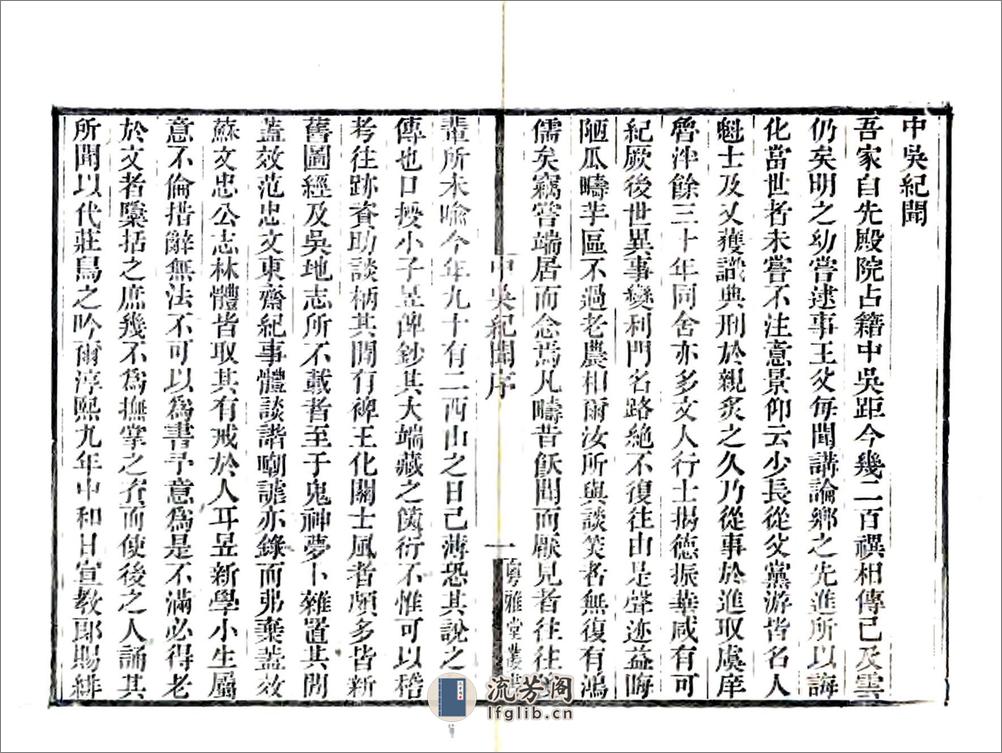 中吳紀聞
吾家自先殿院占籍中吳距今幾二百禩相傳已及雲
仍矣明之幼嘗逮事王父每聞講論鄉之先進所以誨
化當世者未嘗不注意景仰云少長從父黨游皆名人
魁士及又獲識典刑於親炙之久乃從事於進取虞庠
魯泮餘三十年同舍亦多文人行士揭德振華咸有可
紀厥後世異事變利門名路絶不復往由是聲迹益晦
陋瓜疇芋區不過老農相爾汝所與談笑者無復有鴻
儒矣竊嘗端居而念焉凡疇昔飫聞而厭見者往往
中吳紀聞序
一
粵雅堂叢書
輩所未喻今年九十有二西山之日已薄恐其說之
傳也口授小子昱俾鈔其大端藏之篋衍不惟可以稽
考往跡資助談柄其間有裨王化關士風者頗多皆新
舊圖經及吳地志所不載者至于鬼神夢卜雜置其間
蓋效范忠文東齋紀事體談諧嘲謔亦錄而弗棄蓋效
蘇文忠公志林體皆取其有戒於人耳昱新學小生屬
意不倫措辭無法不可以為書予意為是不滿必得老
於文者櫽括之庶幾不為撫掌之資而使後之人誦其
所聞以代莊舄之吟爾淳熙九年中和日宣教郎賜緋
流芳阁
lfglib.cn